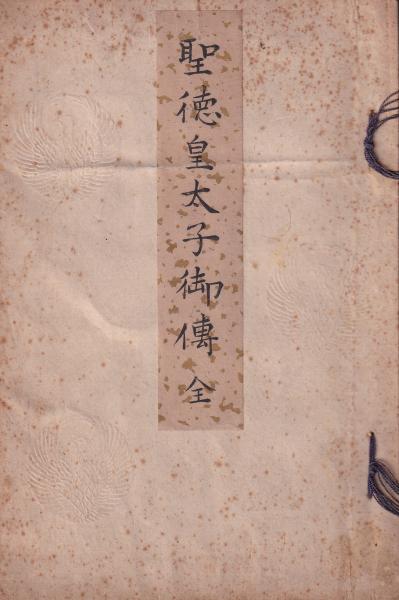 聖徳皇太子御傳 全